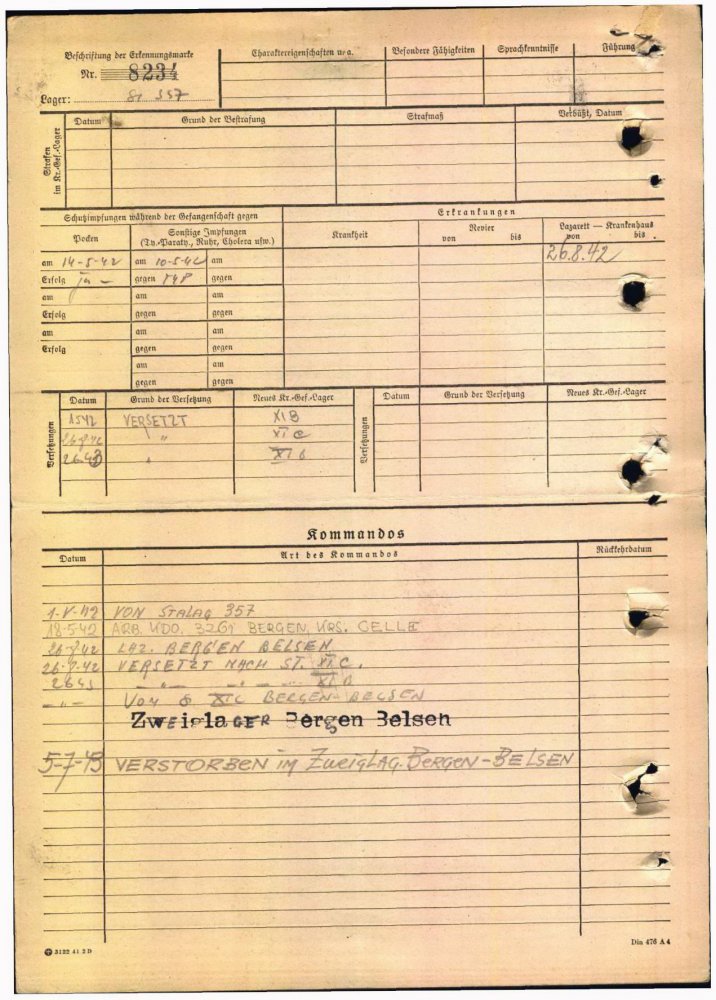 Beschriftung der Erkennungsmarke
Nr. 8234
Lager: St 357
Charaktereigenschaften u. a.
Besondere Fähigkeiten
Sprachkenntnisse
Führung
Strafen im Kr.-Gef.-Lager
Datum
Grund der Bestrafung
Strafmaß
Verbüßt, Datum
Schutzimpfungen während der Gefangenschaft gegen
Erkrankungen
Pocken
Sonstige Impfungen
(Ty.-Paraty., Ruhr, Cholera usw.)
Krankheit
Revier
von bis
Lazarett — Krankenhaus
von bis
am 14-5-42 am 10-5-42 am
26.8.42
Erfolg ja – gegen TYP gegen
am am am
Erfolg gegen gegen
am am am
Erfolg gegen gegen
am am
gegen gegen
Versetzungen
Datum
Grund der Versetzung
Neues Kr.-Gef.-Lager
Versetzungen
Datum
Grund der Versetzung
Neues Kr.-Gef.-Lager
1542 VERSETZT XI B
26-8-42 " XI C
2643 " XI B
Kommandos
Datum
Art des Kommandos
Rückkehrdatum
1-V-42 VON STALAG 357
18-5-42 ARB. KDO. 3261 BERGEN, KRS. CELLE
26-8-42 LAZ. BERGEN BELSEN
26-8-42 VERSETZT NACH ST. XI C.
2643 –"– –"– – " XI B
–"– VON XI C BERGEN-BELSEN
Zweiglager Bergen Belsen
5-7-43 VERSTORBEN im Zweiglag. BERGEN-BELSEN
3132 41 2 D
Din 476 A 4